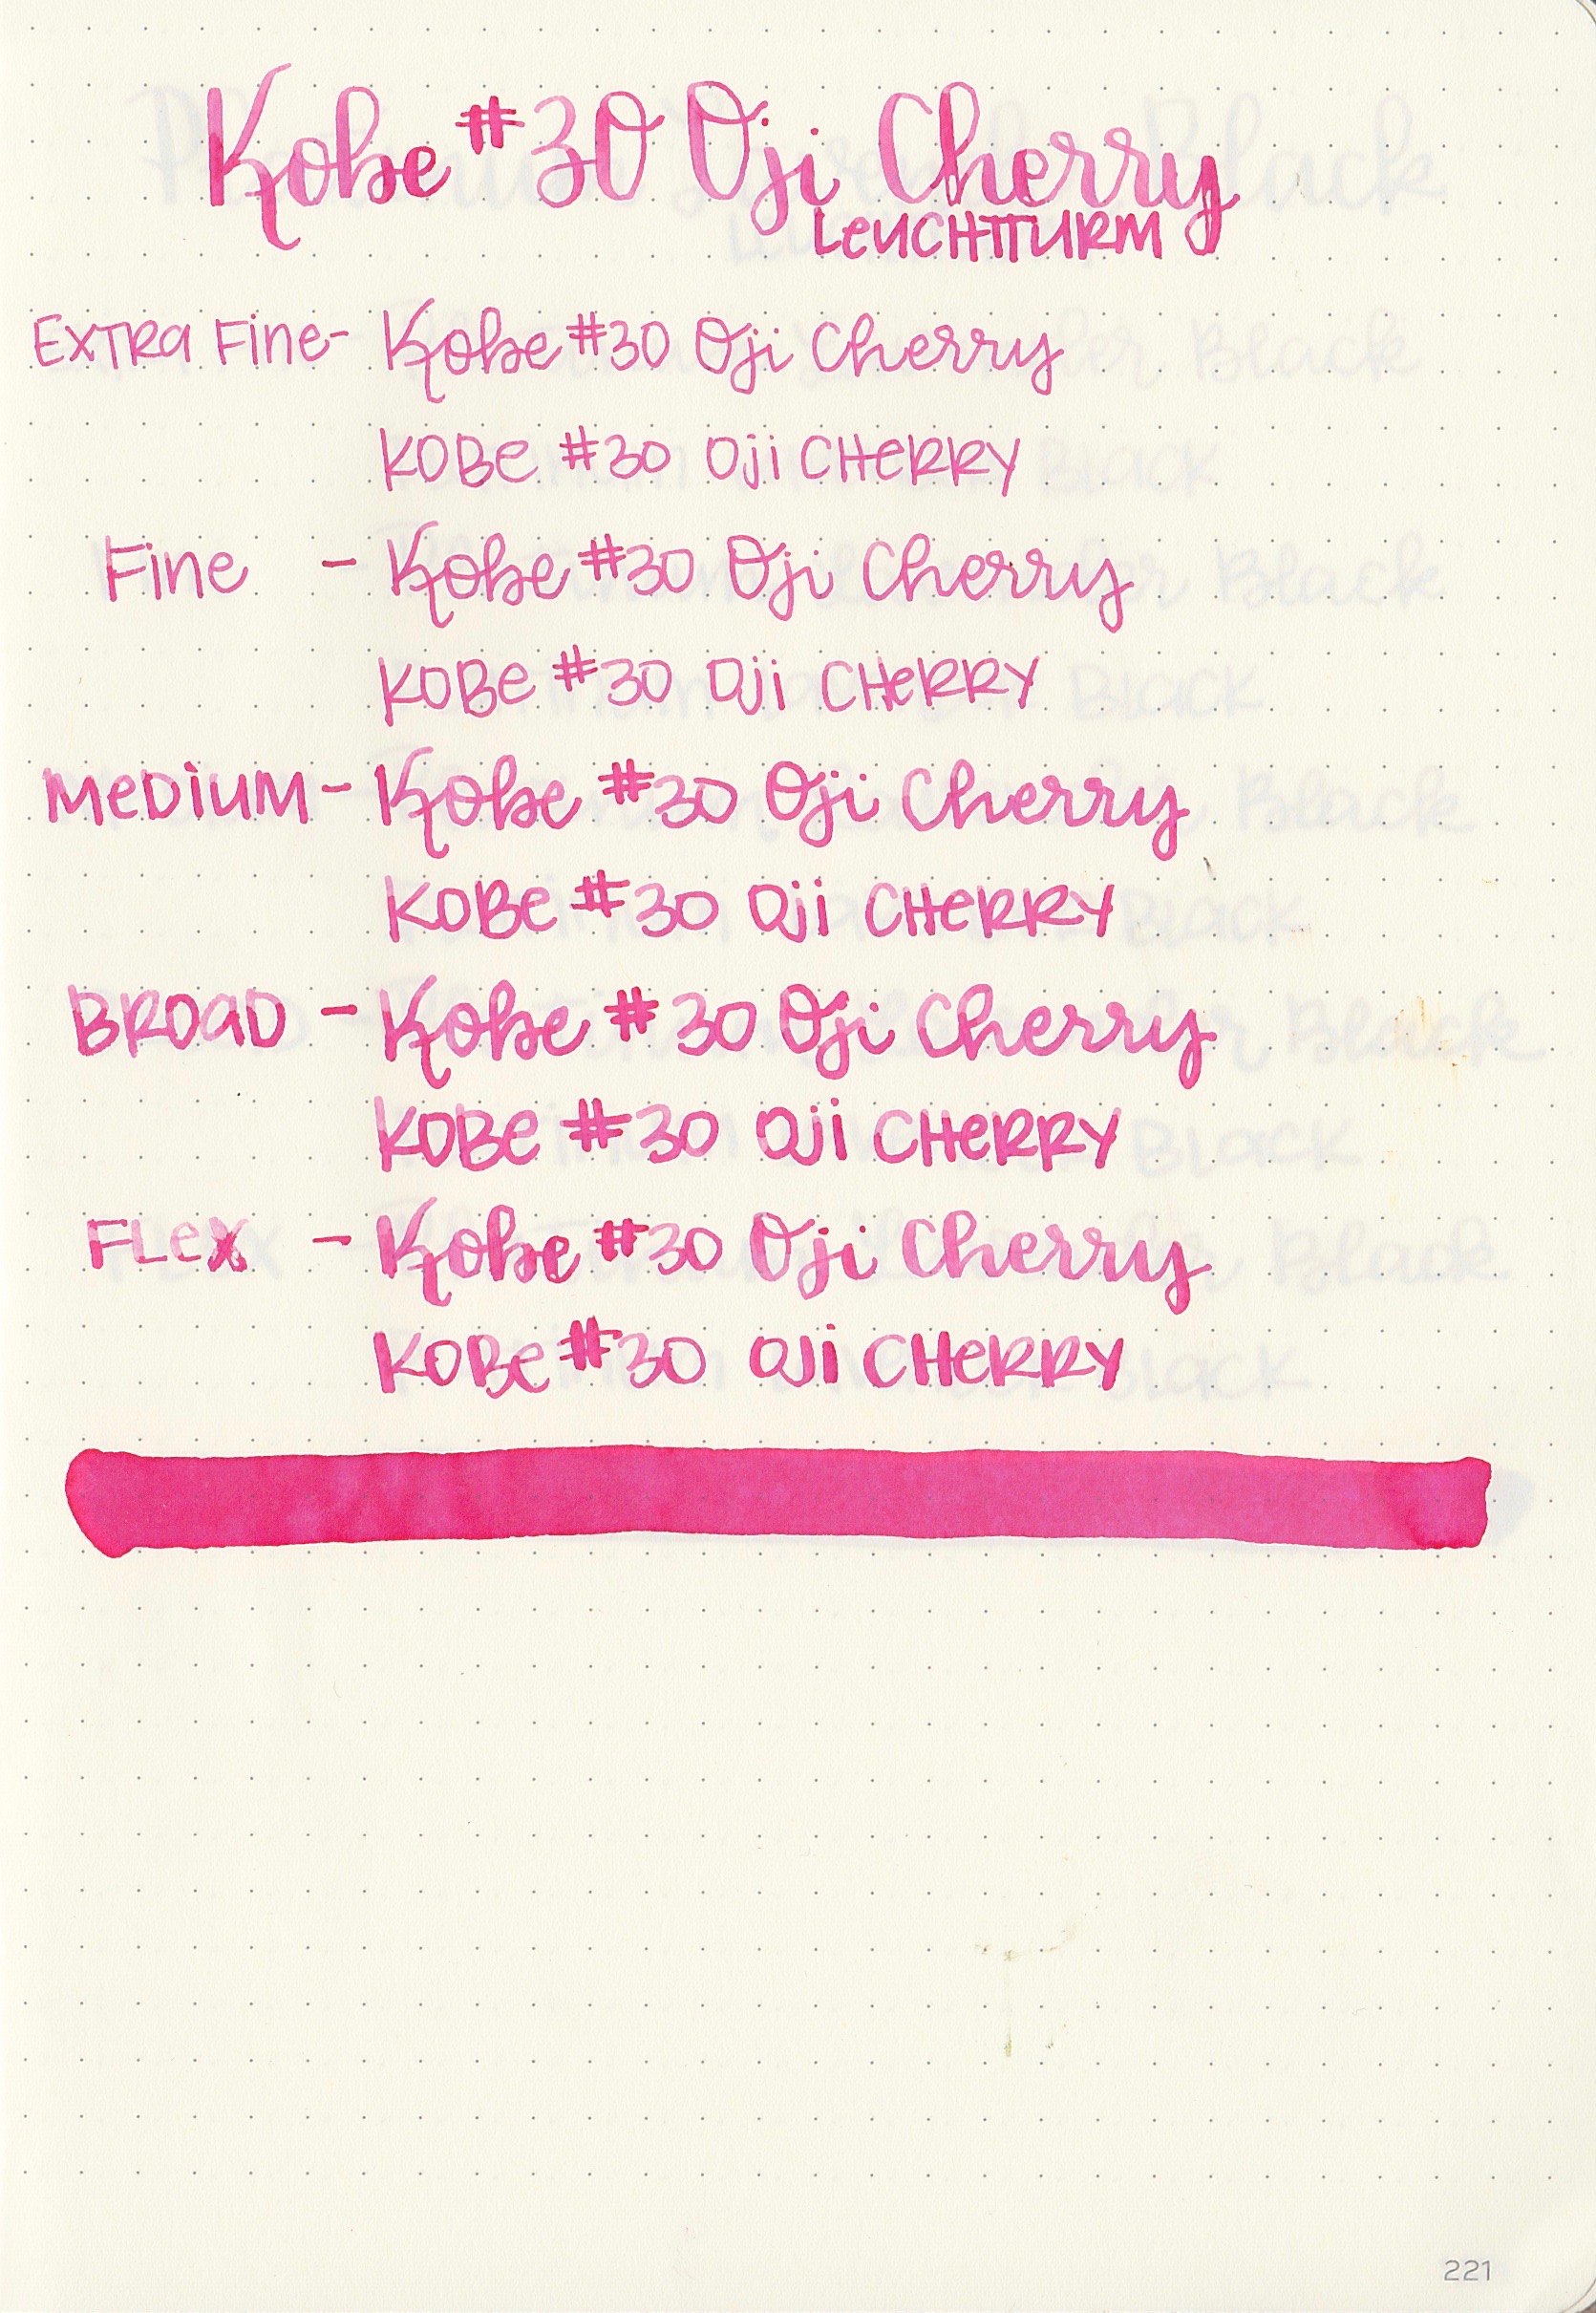 Kobe #30 Oji Cherry
LeUCHTTURM
ExTRa Fine- Kobe #30 Oji Cherry
KOBe #30 Oji CHeRRY
Fine - Kobe #30 Oji Cherry
KOBe #30 Oji CHeRRY
MeDiUM- Kobe #30 Oji Cherry
KOBe #30 Oji CHeRRY
BROaD - Kobe #30 Oji Cherry
KOBe #30 Oji CHeRRY
FLex - Kobe #30 Oji Cherry
KOBe #30 Oji CHeRRY
221